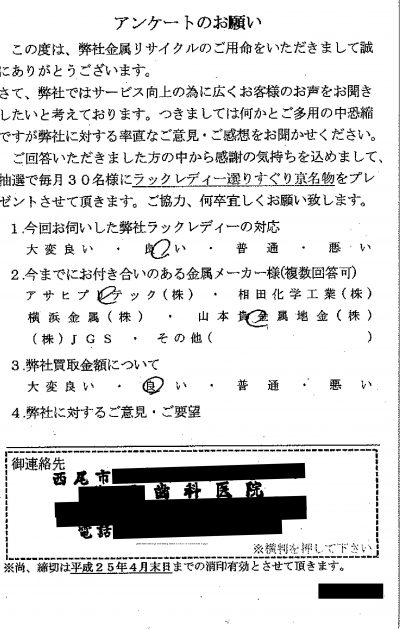 アンケートのお願い
この度は、弊社金属リサイクルのご用命をいただきまして誠
にありがとうございます。
さて、弊社ではサービス向上の為に広くお客様のお声をお聞き
したいと考えております。つきましては何かとご多用の中恐縮
ですが弊社に対する率直なご意見・ご感想をお聞かせください。
ご回答いただきました方の中から感謝の気持ちを込めまして、
抽選で毎月30名様にラックレディー選りすぐり京名物をプレ
ゼントさせて頂きます。ご協力、何卒宜しくお願い致します。
1.今回お伺いした弊社ラックレディーの対応
大変良い・良い・普通・悪い
2.今までにお付き合いのある金属メーカー様(複数回答可)
アサヒプリテック(株)・相田化学工業(株)
横浜金属(株)・山本貴金属地金(株)
(株)JGS・その他( )
3.弊社買取金額について
大変良い・良い・普通・悪い
4.弊社に対するご意見・ご要望
御連絡先
西尾市
歯科医院
電話
※横判を押して下さい
※尚、締切は平成25年4月末日までの消印有効とさせて頂きます。